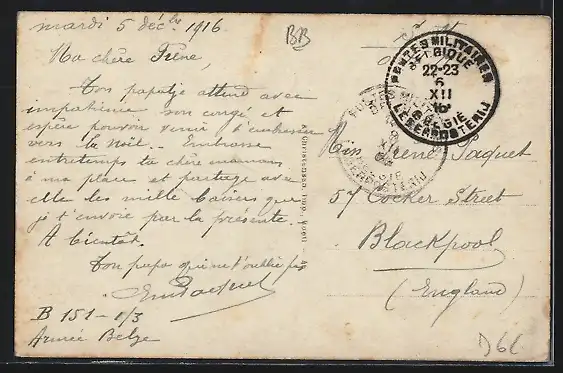 mardi 5 décbre 1916
BB
Ma chère Irène,
Ton papatje attend avec
impatience son congé et
espère pouvoir venir t'embrasser
vers la Noël. Embrasse
entretemps ta chère maman
à ma place et partage avec
elle les mille baisers que
je t'envoie par la présente.
A bientôt.
Ton papa qui ne t'oublie pas
B 151 - 1/3
Armée Belge
POSTES MILITAIRES
BELGIQUE
22-23
6
XII
16
BELGIË
LEGERPOSTERIJ
Miss Irène Paquet
57 Cocker Street
Blackpool
(England)
D6L